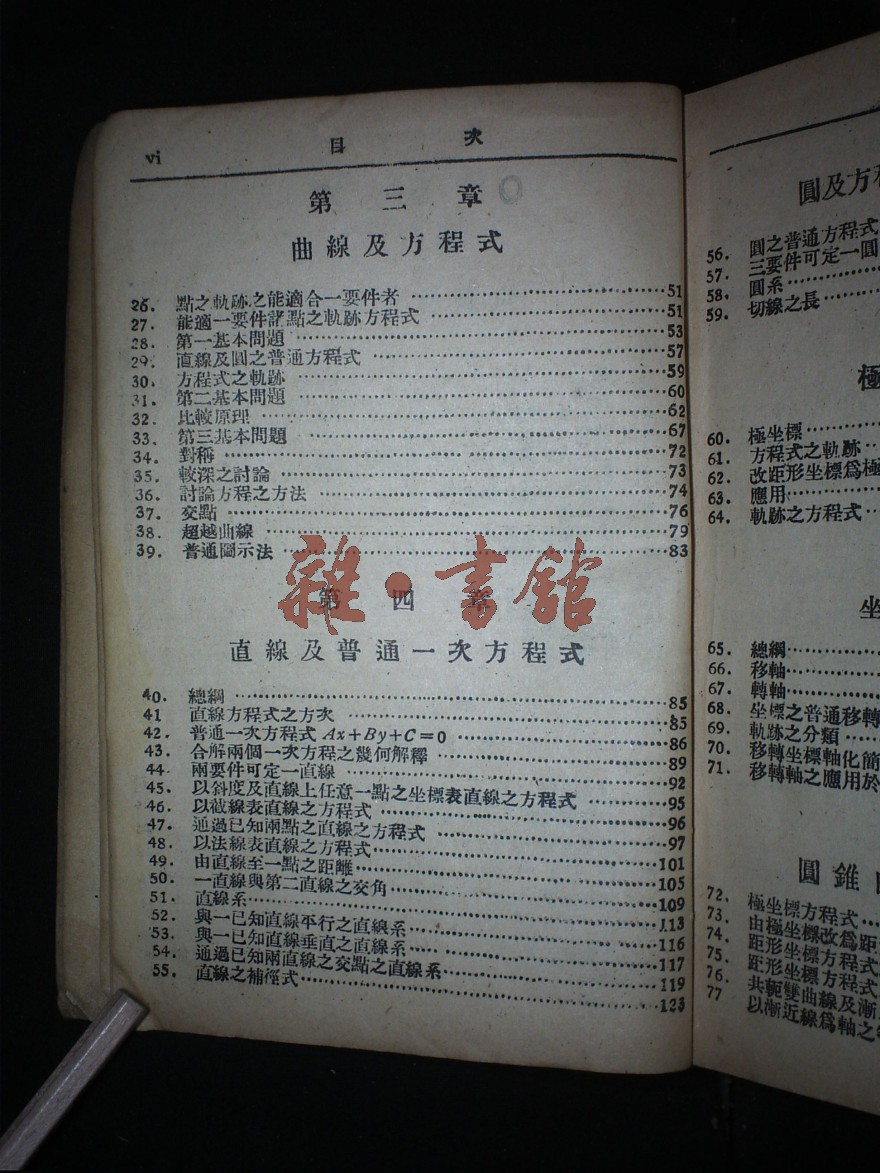 vi 目 次
第 三 章
曲線及方程式
26. 點之軌跡之能適合一要件者 51
27. 能適一要件諸點之軌跡方程式 51
28. 第一基本問題 53
29. 直線及圓之普通方程式 57
30. 方程式之軌跡 59
31. 第二基本問題 60
32. 比較原理 62
33. 第三基本問題 67
34. 對稱 72
35. 較深之討論 73
36. 討論方程之方法 74
37. 交點 76
38. 超越曲線 79
39. 普通圖示法 83
雜·書館
第 四 章
直線及普通一次方程式
40. 總綱 85
41 直線方程式之方次 85
42. 普通一次方程式 Ax+By+C=0 86
43. 合解兩個一次方程之幾何解釋 89
44. 兩要件可定一直線 92
45. 以斜度及直線上任意一點之坐標表直線之方程式 95
46. 以截線表直線之方程式 96
47. 通過已知兩點之直線之方程式 97
48. 以法線表直線之方程式 101
49. 由直線至一點之距離 105
50. 一直線與第二直線之交角 109
51. 直線系 113
52. 與一已知直線平行之直線系 116
53. 與一已知直線垂直之直線系 117
54. 通過已知兩直線之交點之直線系 119
55. 直線之補徑式 123
圓及方程
56. 圓之普通方程式
57. 三要件可定一圓
58. 圓系
59. 切線之長
極
60. 極坐標
61. 方程式之軌跡
62. 改距形坐標爲極
63. 應用
64. 軌跡之方程式
坐
65. 總綱
66. 移軸
67. 轉軸
68. 坐標之普通移轉
69. 軌跡之分類
70. 移轉坐標軸化簡
71. 移轉軸之應用於
圓錐
72. 極坐標方程式
73. 由極坐標改爲距
74. 距形坐標方程式
75. 距形坐標方程式
76. 共軛雙曲線及漸
77 以漸近線爲軸之